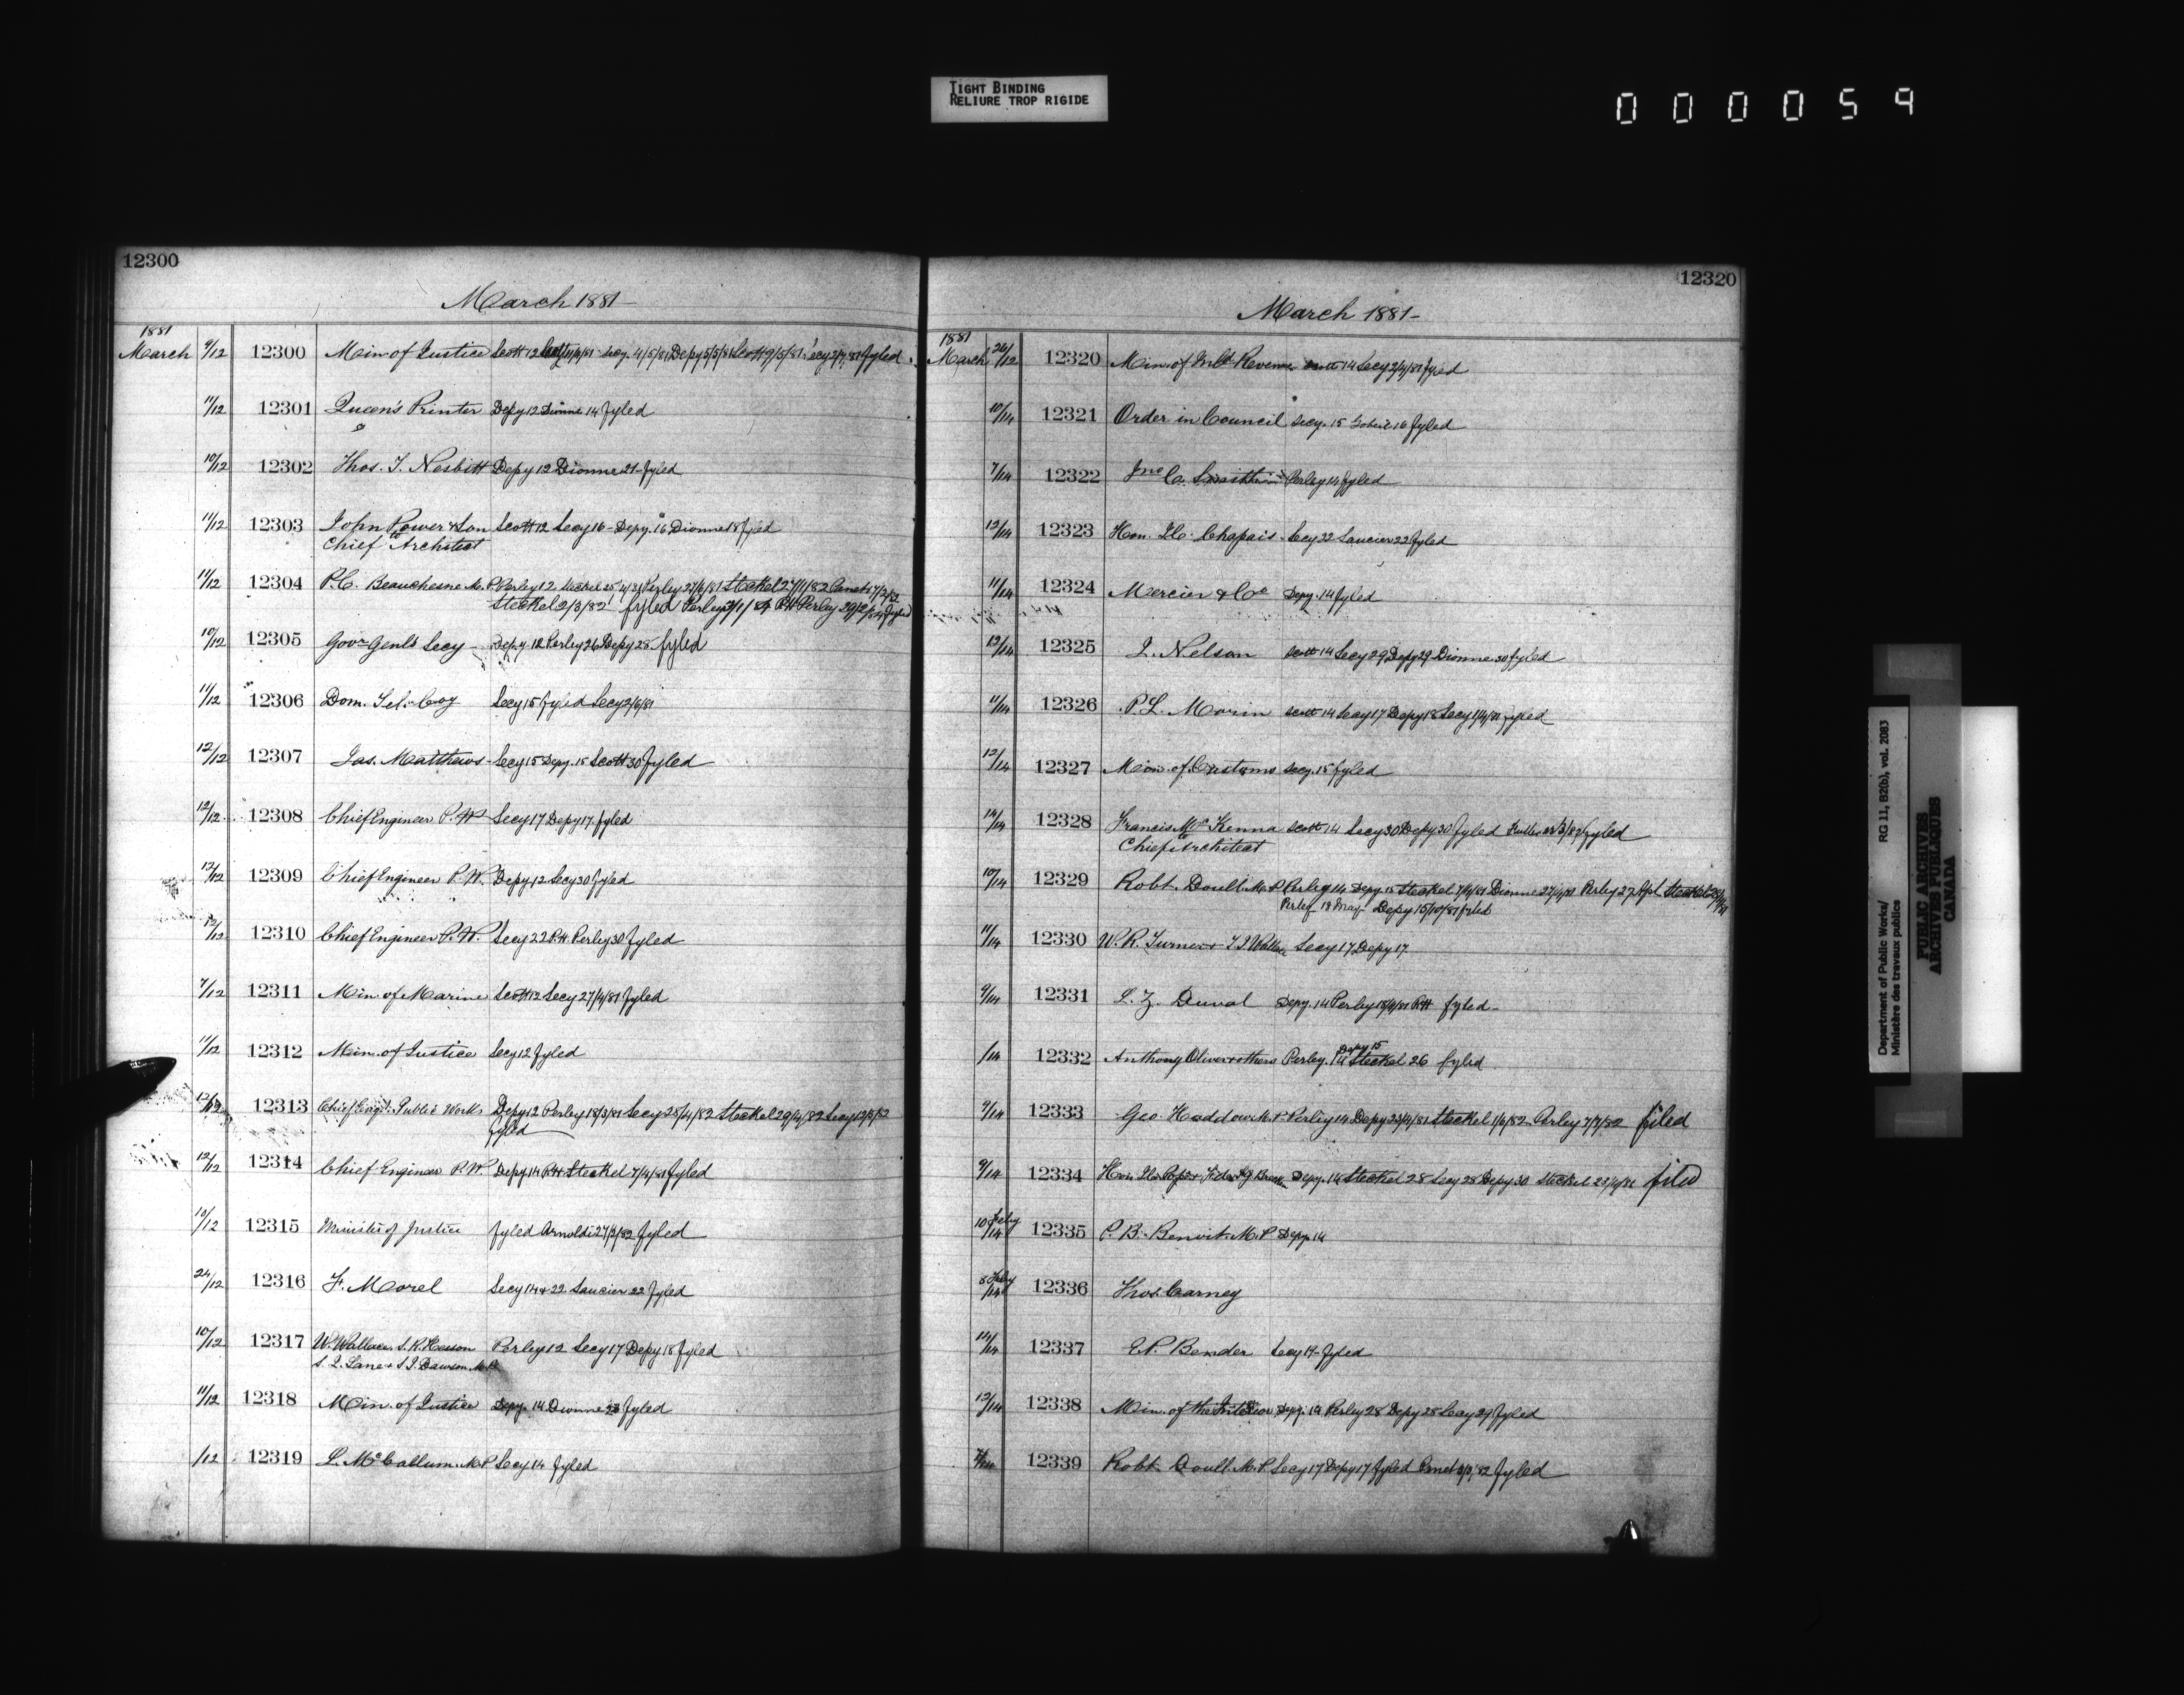 TIGHT BINDING
RELIURE TROP RIGIDE
000059
12300
March 1881-
1881
March 9/12 12300 Min. of Justice Scott 12 Secy. 4/5/81 Depy 5/5/81 Scott 9/5/81 Secy 2/7/81 fyled
11/12 12301 Queen's Printer Depy 12 Dionne 14 fyled
10/12 12302 Thos. J. Nesbitt Depy 12 Dionne 21 - fyled
11/12 12303 John Power & Son Scott 12 Secy 16 - Depy. 16 Dionne 18 fyled
Chief Architect
11/12 12304 P.C. Beauchesne M.P. Perley 12 Steckel 27/1/82
Steckel 2/3/82 fyled Perley
10/12 12305 Govr Genls Secy - Depy 12 Perley 26 Depy 28 fyled
11/12 12306 Dom. Tel. Coy Secy 15 fyled Secy 2/6/81
12/12 12307 Jas. Matthews - Secy 15 Depy. 15 Scott 30 fyled
12/12 12308 Chief Engineer P.W Secy 17 Depy 17 fyled
12/12 12309 Chief Engineer P.W. Depy 12 Secy 30 fyled
12/12 12310 Chief Engineer P.W. Secy 22 Perley 30 fyled
7/12 12311 Min. of Marine Scott 12 Secy 27/4/81 fyled
11/12 12312 Min. of Justice Secy 12 fyled
12/12 12313 Chief Eng. Public Works Depy 12 Perley 18/3/81 Secy 28/4/82 Steckel 29/4/82 Secy 12/5/82
fyled
12/12 12314 Chief Engineer P.W. Depy 14 Steckel 7/4/81 fyled
10/12 12315 Minister of Justice fyled Arnoldi 27/3/82 fyled
24/12 12316 F. Morel Secy 14 & 22 Saucier 22 fyled
10/12 12317 W. Wallace, S.R. Hesson Perley 12 Secy 17 Depy 18 fyled
S.J. Dawson M.P.
11/12 12318 Min. of Justice Depy. 14 Dionne 23 fyled
/12 12319 L. McCallum M.P Secy 14 fyled
12320
March 1881-
1881
March 26/12 12320 Min. of Inld Revenue Scott 14 Secy 2/4/81 fyled
10/14 12321 Order in Council Secy. 15 Gobeil 16 fyled
7/14 12322 Jno C. Smith Perley 14 fyled
12/14 12323 Hon. Chapais - Secy 22 Saucier 22 fyled
11/14 12324 Mercier & Co Depy. 14 fyled
12/14 12325 J. Nelson Scott 14 Secy 29 Depy 29 Dionne 30 fyled
11/14 12326 P.L. Morin Scott 14 Secy 17 Depy 18 Secy 1/4/81 fyled
12/14 12327 Min. of Customs Secy. 15 fyled
14/14 12328 Francis McKenna Scott 14 Secy 30 Depy 30 fyled Fuller fyled
Chief Architect
10/14 12329 Robt. Doull M.P Perley 14 Depy 15 Steckel 7/4/81 Dionne 27/4/81 Perley 27 Apl Steckel
Perley 18 May Depy 15/10/81 fyled
11/14 12330 W.R. Turner & Secy 17 Depy 17.
9/14 12331 L.Z. Duval Depy. 14 Perley 18/4/81 fyled -
/14 12332 Anthony Oliver & others Perley. 14 Depy 15 Steckel 26 fyled
9/14 12333 Geo. Haddow M.P Perley 14 Depy 23/4/81 Steckel 1/6/82 Perley 7/7/82 filed
9/14 12334 Hon. Pope Depy. 14 Steckel 28 Secy 28 Depy 30 Steckel filed
10 Feby/14 12335 P.B. Benoit M.P Depy. 14
8 Feby/14 12336 Thos. Carney
14/14 12337 E.P. Bender Secy 17 - fyled
12/14 12338 Min. of the Interior Depy. 14 Perley 28 Depy 28 Secy 29 fyled
12339 Robt. Doull M.P. Secy 17 Depy 17 fyled fyled
Department of Public Works/ RG 11, B2(b), vol. 2083
Ministère des travaux publics
PUBLIC ARCHIVES
ARCHIVES PUBLIQUES
CANADA